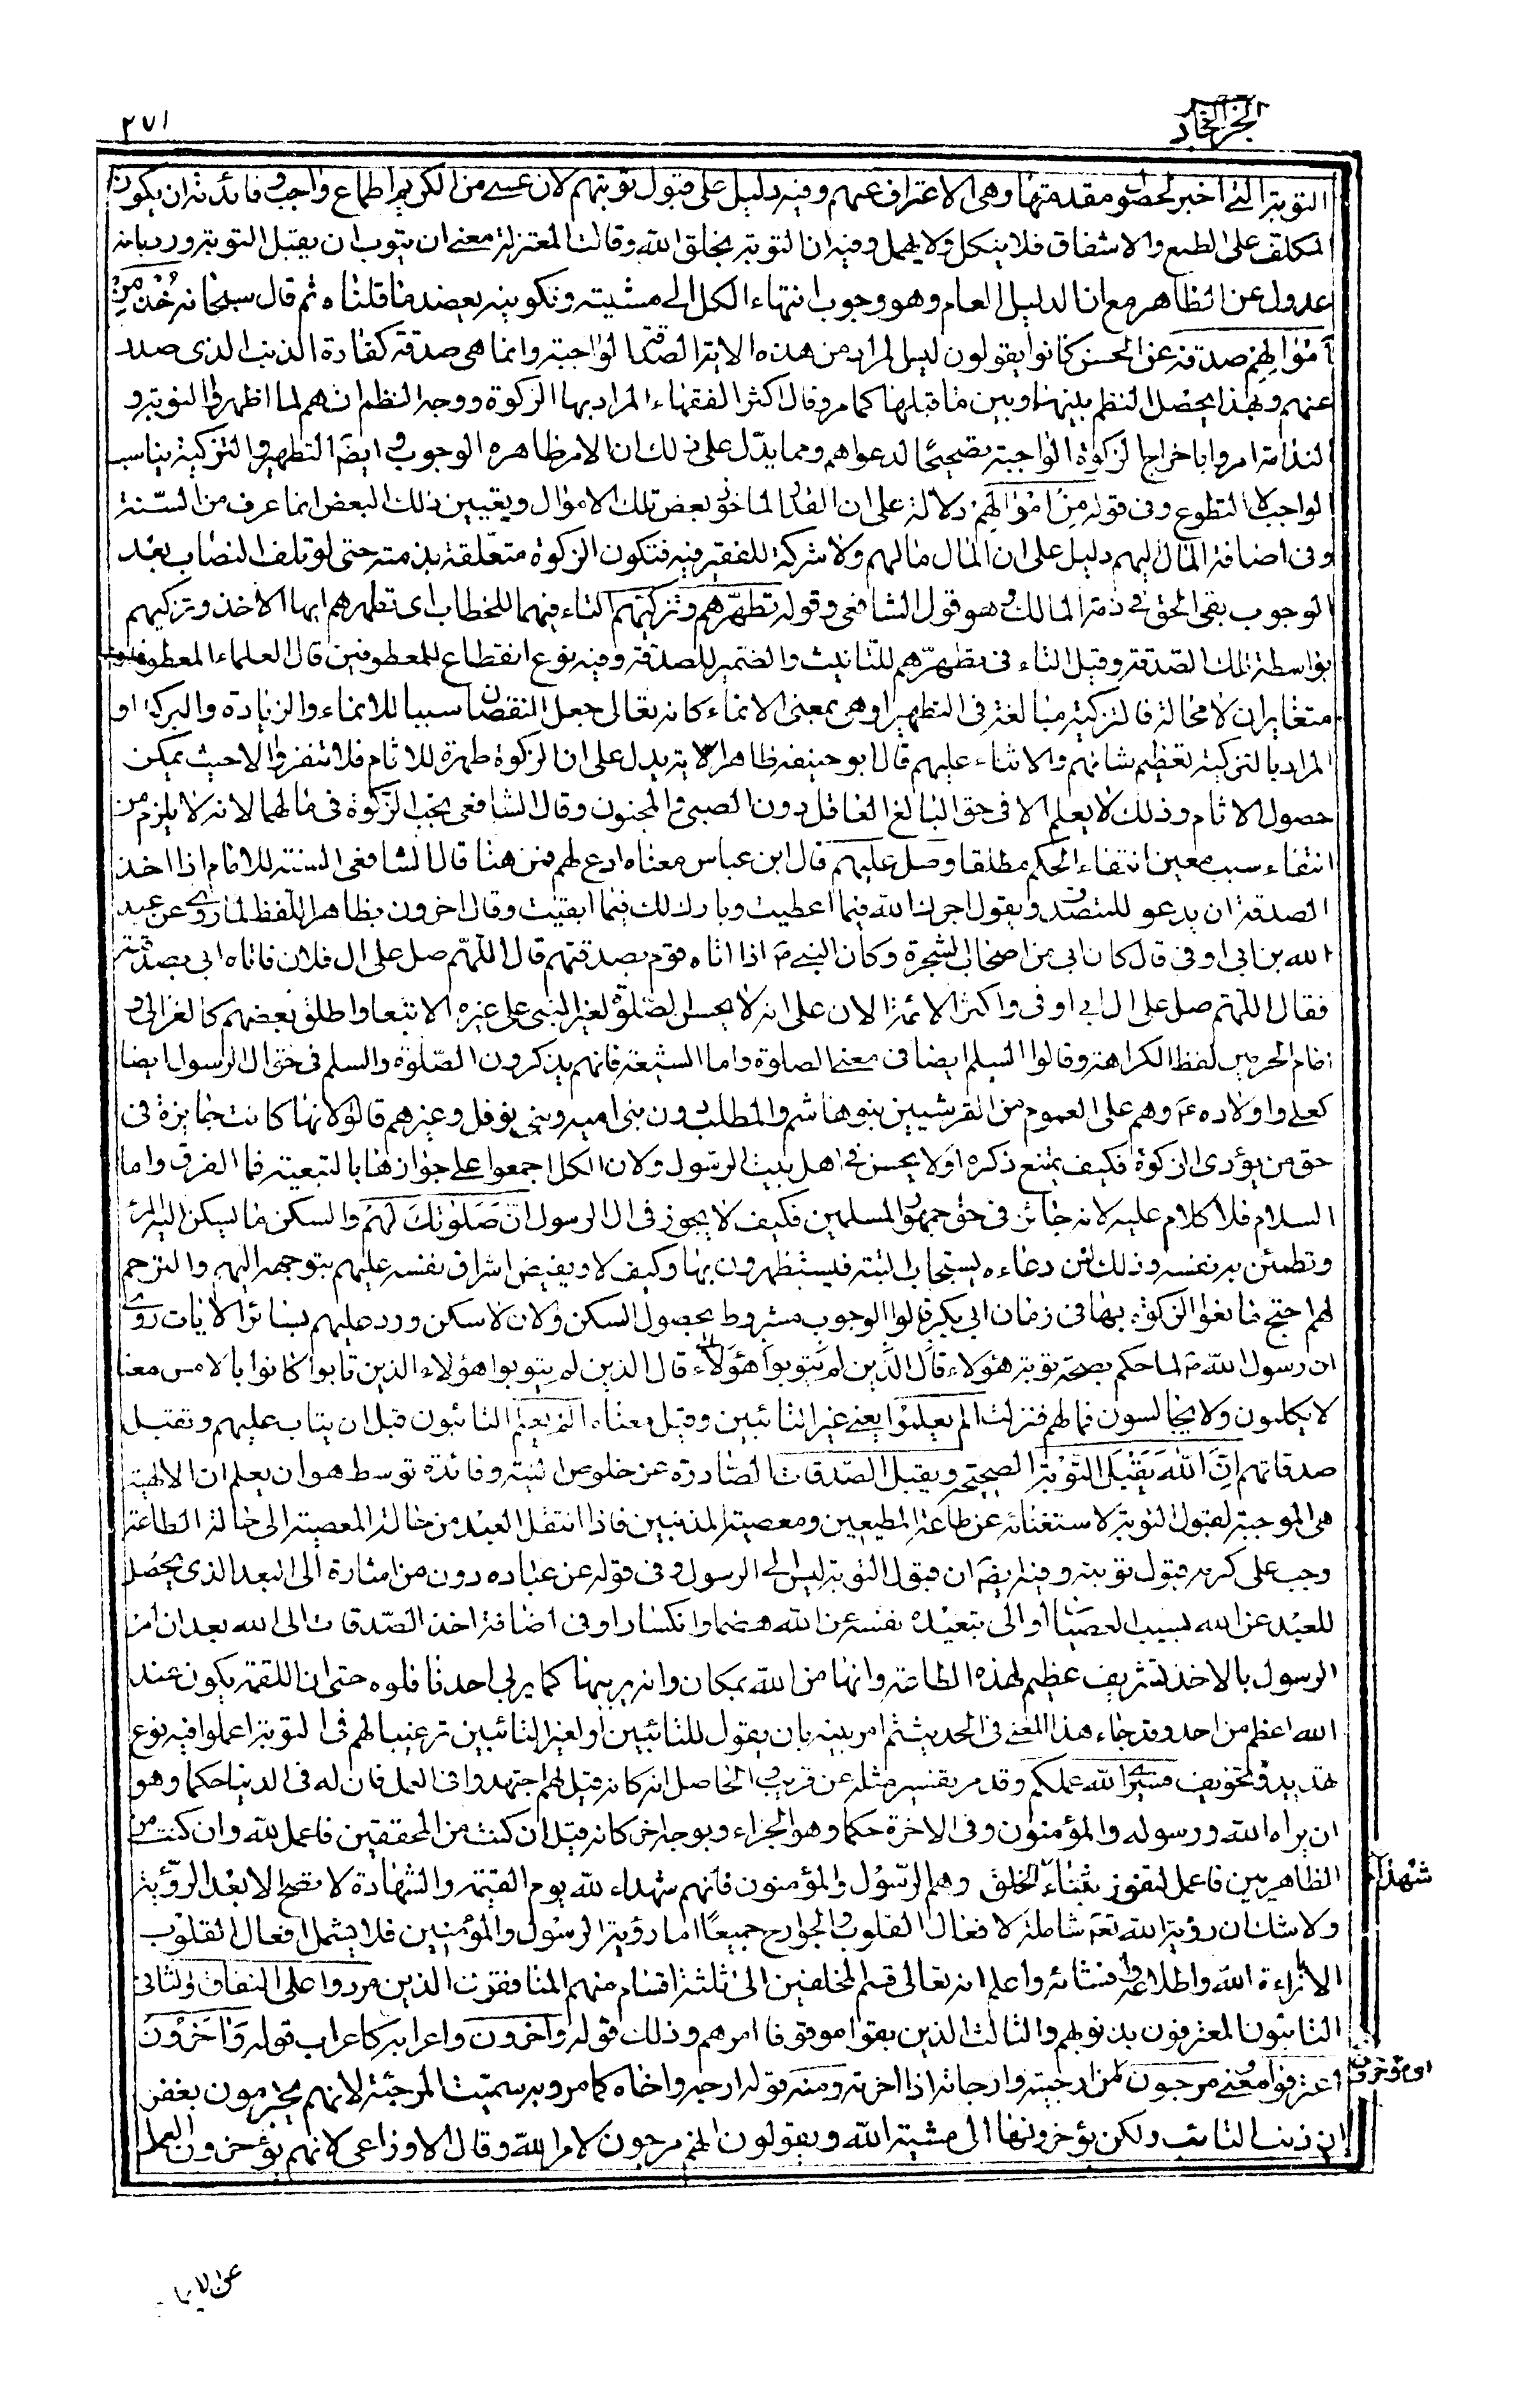 الجزء الحاد
٢٧١
التوبة التى اخبر لحصول مقدمتها وهى الاعتراف عنهم وفيه دليل على قبول توبتهم لان عسى من الكريم اطماع واجب وفائدته ان يكون
المكلف على الطمع والاشفاق فلا ينكل ولا يهمل وفيه ان التوبة بخلق الله وقالت المعتزلة معنى ان يتوب ان يقبل التوبة ورد بانه
عدول عن الظاهر مع ان الدليل العام وهو وجوب انتهاء الكل الى مشيته وتكوينه يعضد ما قلناه ثم قال سبحانه خُذْ مِنْ
اَمْوٰالِهِمْ صدقة عن الحسن كانوا يقولون ليس المراد من هذه الاية الصدقة الواجبة وانما هى صدقة كفارة الذنب الذى صدر
عنهم وبهذا يحصل النظم بينها وبين ما قبلها كما مر وقال اكثر الفقهاء المراد بها الزكوة ووجه النظم انهم لما اظهروا التوبة و
الندامة امروا باخراج الزكوة الواجبة تصحيحًا لدعواهم ومما يدل على ذلك ان الامر ظاهره الوجوب وايضَ التطهير والتزكية يناسب
الواجب لا التطوع وفى قوله مِنْ اَمْوٰالِهِمْ دلالة على ان القدر الماخوذ بعض تلك الاموال وتعيين ذلك البعض انما عرف من السّنة
وفى اضافة المال اليهم دليل على ان المال مالهم ولا شركة للفقير فيه فتكون الزكوة متعلّقة بذمته حتى لو تلف النصاب بعد
الوجوب بقى الحق فى ذمة المالك وهو قول الشافعى وقوله تطهّرهم وتزكيهم التاء فيهما للخطاب اى تطهرهم ايها الاخذ وتزكيهم
بواسطة تلك الصّدقة وقيل التاء فى تطهّرهم للتانيث والضمير للصدقة وفيه نوع انقطاع للمعطوفين قال العلماء المعطوفان
متغايران لا محالة فالتزكية مبالغة فى التطهير او هى بمعنى الانماء كانه تعالى جعل النقصان سببا للانماء والزيادة والبركة او
المراد بالتزكية تعظيم شانهم والاثناء عليهم قال ابو حنيفة ظاهر الاية يدل على ان الزكوة طهرة للاثام فلا تتقرر الا حيث يمكن
حصول الاثام وذلك لا يعلم الا فى حق البالغ العاقل دون الصبى والمجنون وقال الشافعى يجب الزكوة فى مالهما لانه لا يلزم من
انتفاء سبب معين انتفاء الحكم مطلقا وصل عليهم قال ابن عباس معناه ادع لهم فمن هنا قال الشافعى السنة للامام اذا اخذ
الصدقة ان يدعو للمتصدق ويقول اجرك الله فيما اعطيت وبارك لك فيما ابقيت وقال اخرون بظاهر اللفظ لما روى عن عبد
الله بن ابى اوفى قال كان ابى من اصحاب الشجرة وكان النبى ص اذا اتاه قوم بصدقتهم قال اللّهم صل على ال فلان فاتاه ابى بصدقته
فقال اللّهم صل على ال ابى اوفى واكثر الائمة الان على انه لا يحسن الصّلوة لغير النبى على غيره الا تبعا واطلق بعضهم كالغزالى و
امام الحرمين لفظ الكراهة وقالوا السلم ايضا فى معنى الصلوة واما الشيعة فانهم يذكرون الصّلوة والسلم فى حق ال الرسول ايضا
كعلى واولاده ع وهم على العموم من القرشيين بنو هاشم والمطلب دون بنى امية وبنى نوفل وغيرهم قالوا لانها كانت جايزة فى
حق من يؤدى الزكوة فكيف يمتنع ذكره او لا يحسن فى اهل بيت الرسول ولان الكل اجمعوا على جوازها بالتبعية فما الفرق واما
السلام فلا كلام عليه لانه جائز فى حق جمهور المسلمين فكيف لا يجوز فى ال الرسول انّ صَلَوٰتَكَ سَكَنٌ لَهُمْ والسكن ما يسكن اليه المرء
وتطمئن به نفسه وذلك لان دعاءه يستجاب البتة فيستظهرون بها وكيف لا ويفيض اشراق نفسه عليهم بتوجهه اليهم والترحم
لهم احتج مانعوا الزكوة بها فى زمان ابى بكر قالوا الوجوب مشروط بحصول السكن والان لا سكن ورد عليهم بسائر الايات روى
ان رسول الله ص لما حكم بصحة توبة هؤلاء قال الذين لم يتوبوا هؤلاء قال الذين لم يتوبوا هؤلاء الذين تابوا كانوا بالامس معنا
لا يكلمون ولا يجالسون فما لهم فنزلت الم يعلموا يعنى غير التائبين وقيل معناه الم يعلم التائبون قبل ان يتاب عليهم وتقبل
صدقاتهم اِنَّ اللّٰهَ يَقْبَلُ التَّوْبَةَ الصحيحة ويقبل الصّدقات الصّادرة عن خلوص النية وفائدة توسط هو ان يعلم ان الالهية
هى الموجبة لقبول التوبة لاستغنائه عن طاعة المطيعين ومعصية المذنبين فاذا انتقل العبد من حالة المعصية الى حالة الطاعة
وجب على كرمه قبول توبته وفيه ايضَ ان قبول التوبة ليس الى الرسول وفى قوله عن عباده دون من اشارة الى البعد الذى يحصل
للعبد عن الله بسبب العصيان او الى تبعيده نفسه عن الله هضما وانكسارا وفى اضافة اخذ الصّدقات الى الله بعد ان امر
الرسول بالاخذ تشريف عظيم لهذه الطاعة وانها من الله بمكان وانه يربيها كما يربى احدنا فلوه حتى ان اللقمة يكون عند
الله اعظم من احد وقد جاء هذا المعنى فى الحديث ثم امر نبيه بان يقول للتائبين او لغير التائبين ترغيبا لهم فى التوبة اعملوا فيه نوع
تهديد وتخويف فسيرى الله عملكم وقد مر تفسير مثله عن قريب والحاصل انه كانه قيل لهم اجتهدوا فى العمل فان له فى الدنيا حكما وهو
ان يراه الله ورسوله والمؤمنون وفى الاخرة حكما وهو الجزاء وبوجه اخر كانه قيل ان كنت من المحققين فاعمل لله وان كنت من
الظاهريين فاعمل لتفوز بثناء الخلق وهم الرّسول والمؤمنون فانهم شهداء لله يوم القيمة والشهادة لا تصح الا بعد الرّؤية
شهداء
ولا شك ان رؤية الله تعَ شاملة لافعال القلوب والجوارح جميعًا اما رؤية الرسول والمؤمنين فلا يشمل افعال القلوب
الا باراءة الله واطلاعه وافشائه واعلم انه تعالى قسم المخلفين الى ثلثة اقسام منهم المنافقون الذين مردوا على النفاق والثانى
التائبون المعترفون بذنوبهم والثالث الذين بقوا موقوفا امرهم وذلك قوله وآخرون واعرابه كاعراب قوله وَآخَرُونَ
اعترفوا ومعنى مرجون من ارجيته وارجاته اذا اخرته ومنه قوله ارجه واخاه كما مر وبه سميت المرجئة لانهم يجزمون بغفر
ان ذنب التائب ولكن يؤخرونها الى مشية الله ويقولون انهم مرجون لامر الله وقال الاوزاعى لانهم يؤخرون العمل
عن الايما